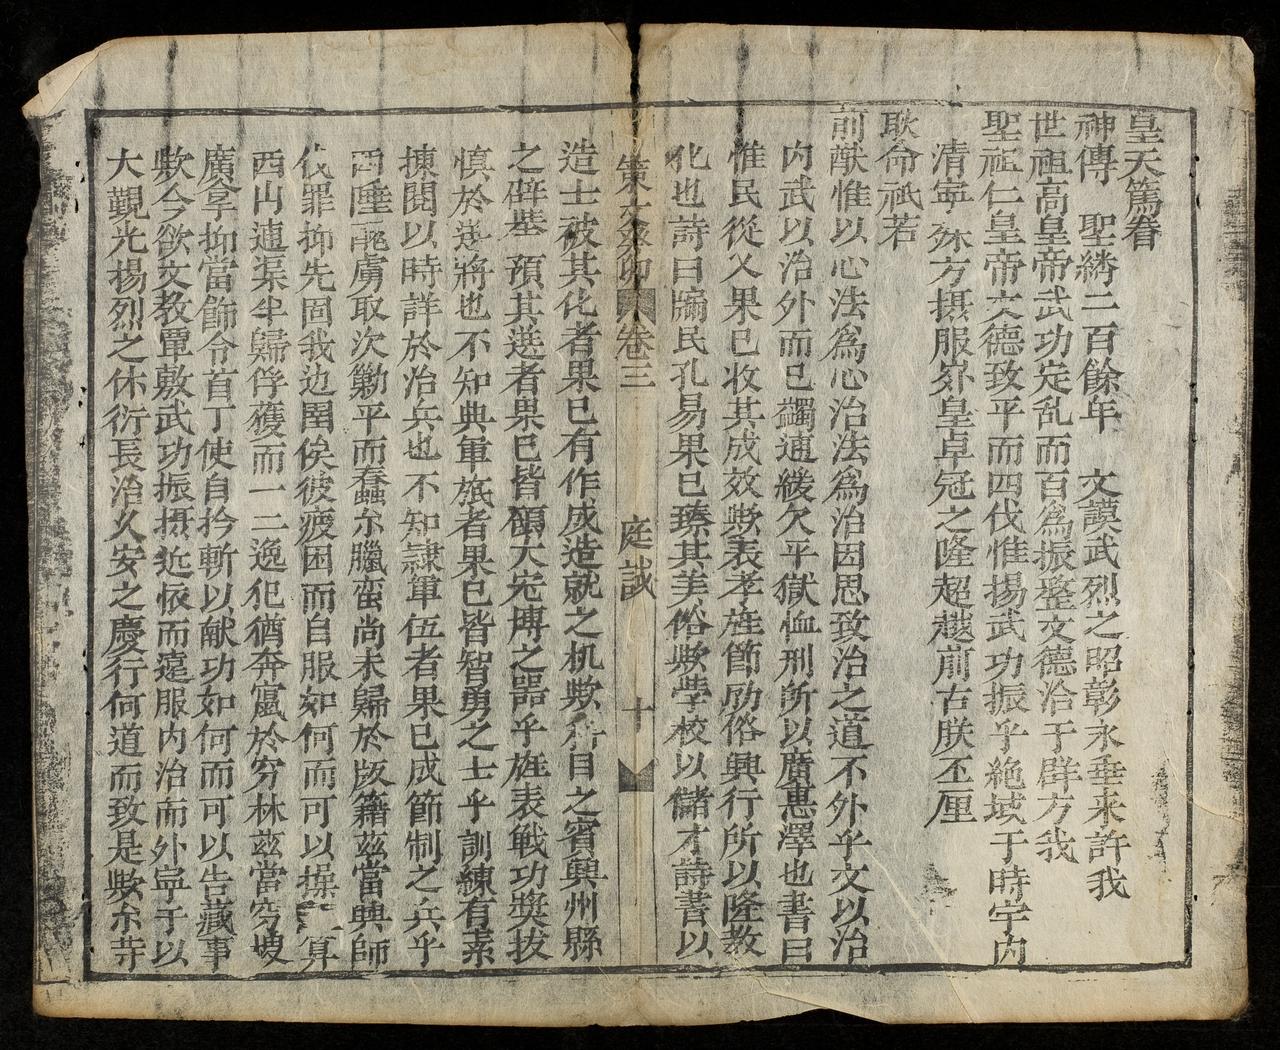 皇天篤眷
神傳　聖繡二百餘年　文謨武烈之昭彰永垂来許我
世祖高皇帝武功定乱而百為振整文德洽于群方我
聖祖仁皇帝文德致平而四伐惟揚武功振乎絶域于時宇內
清寧殊方摄服岿皇卓冠之隆超越前古朕丕厘
耿命祇若
前猷惟以心法爲心治法爲治因思致治之道不外乎文以治
內武以治外而已蠲逋緩欠平獄恤刑所以廣惠澤也書曰
惟民從乂果已收其成效歟表孝旌節励俗興行所以隆教
化也詩曰牖民孔易果已臻其美俗歟學校以儲才詩書以
策文 卷三　庭試　十
造士被其化者果已有作成造就之机歟科目之賓興州縣
之辟举預其送者果已皆碩大宏博之器乎旌表戦功奬拔
慎於送將也不知典軍旅者果已皆智勇之士乎訓練有素
揀閱以時詳於治兵也不知隷軍伍者果已成節制之兵乎
西陲醜虜取次勦平而蠢尒臘蛮尚未歸於版籍茲當興師
伐罪抑先固我边圉俟彼疲困而自服如何而可以操算
西山逋渠半歸俘獲而一二逸犯猶奔竄於穷林茲當穷坡
廣拿抑當飾令首丁使自扲斬以献功如何而可以告蕆事
歟今欲文教覃敷武功振摄近懐而遠服內治而外寧于以
大觐光揚烈之休衍長治久安之慶行何道而致是歟尒寺